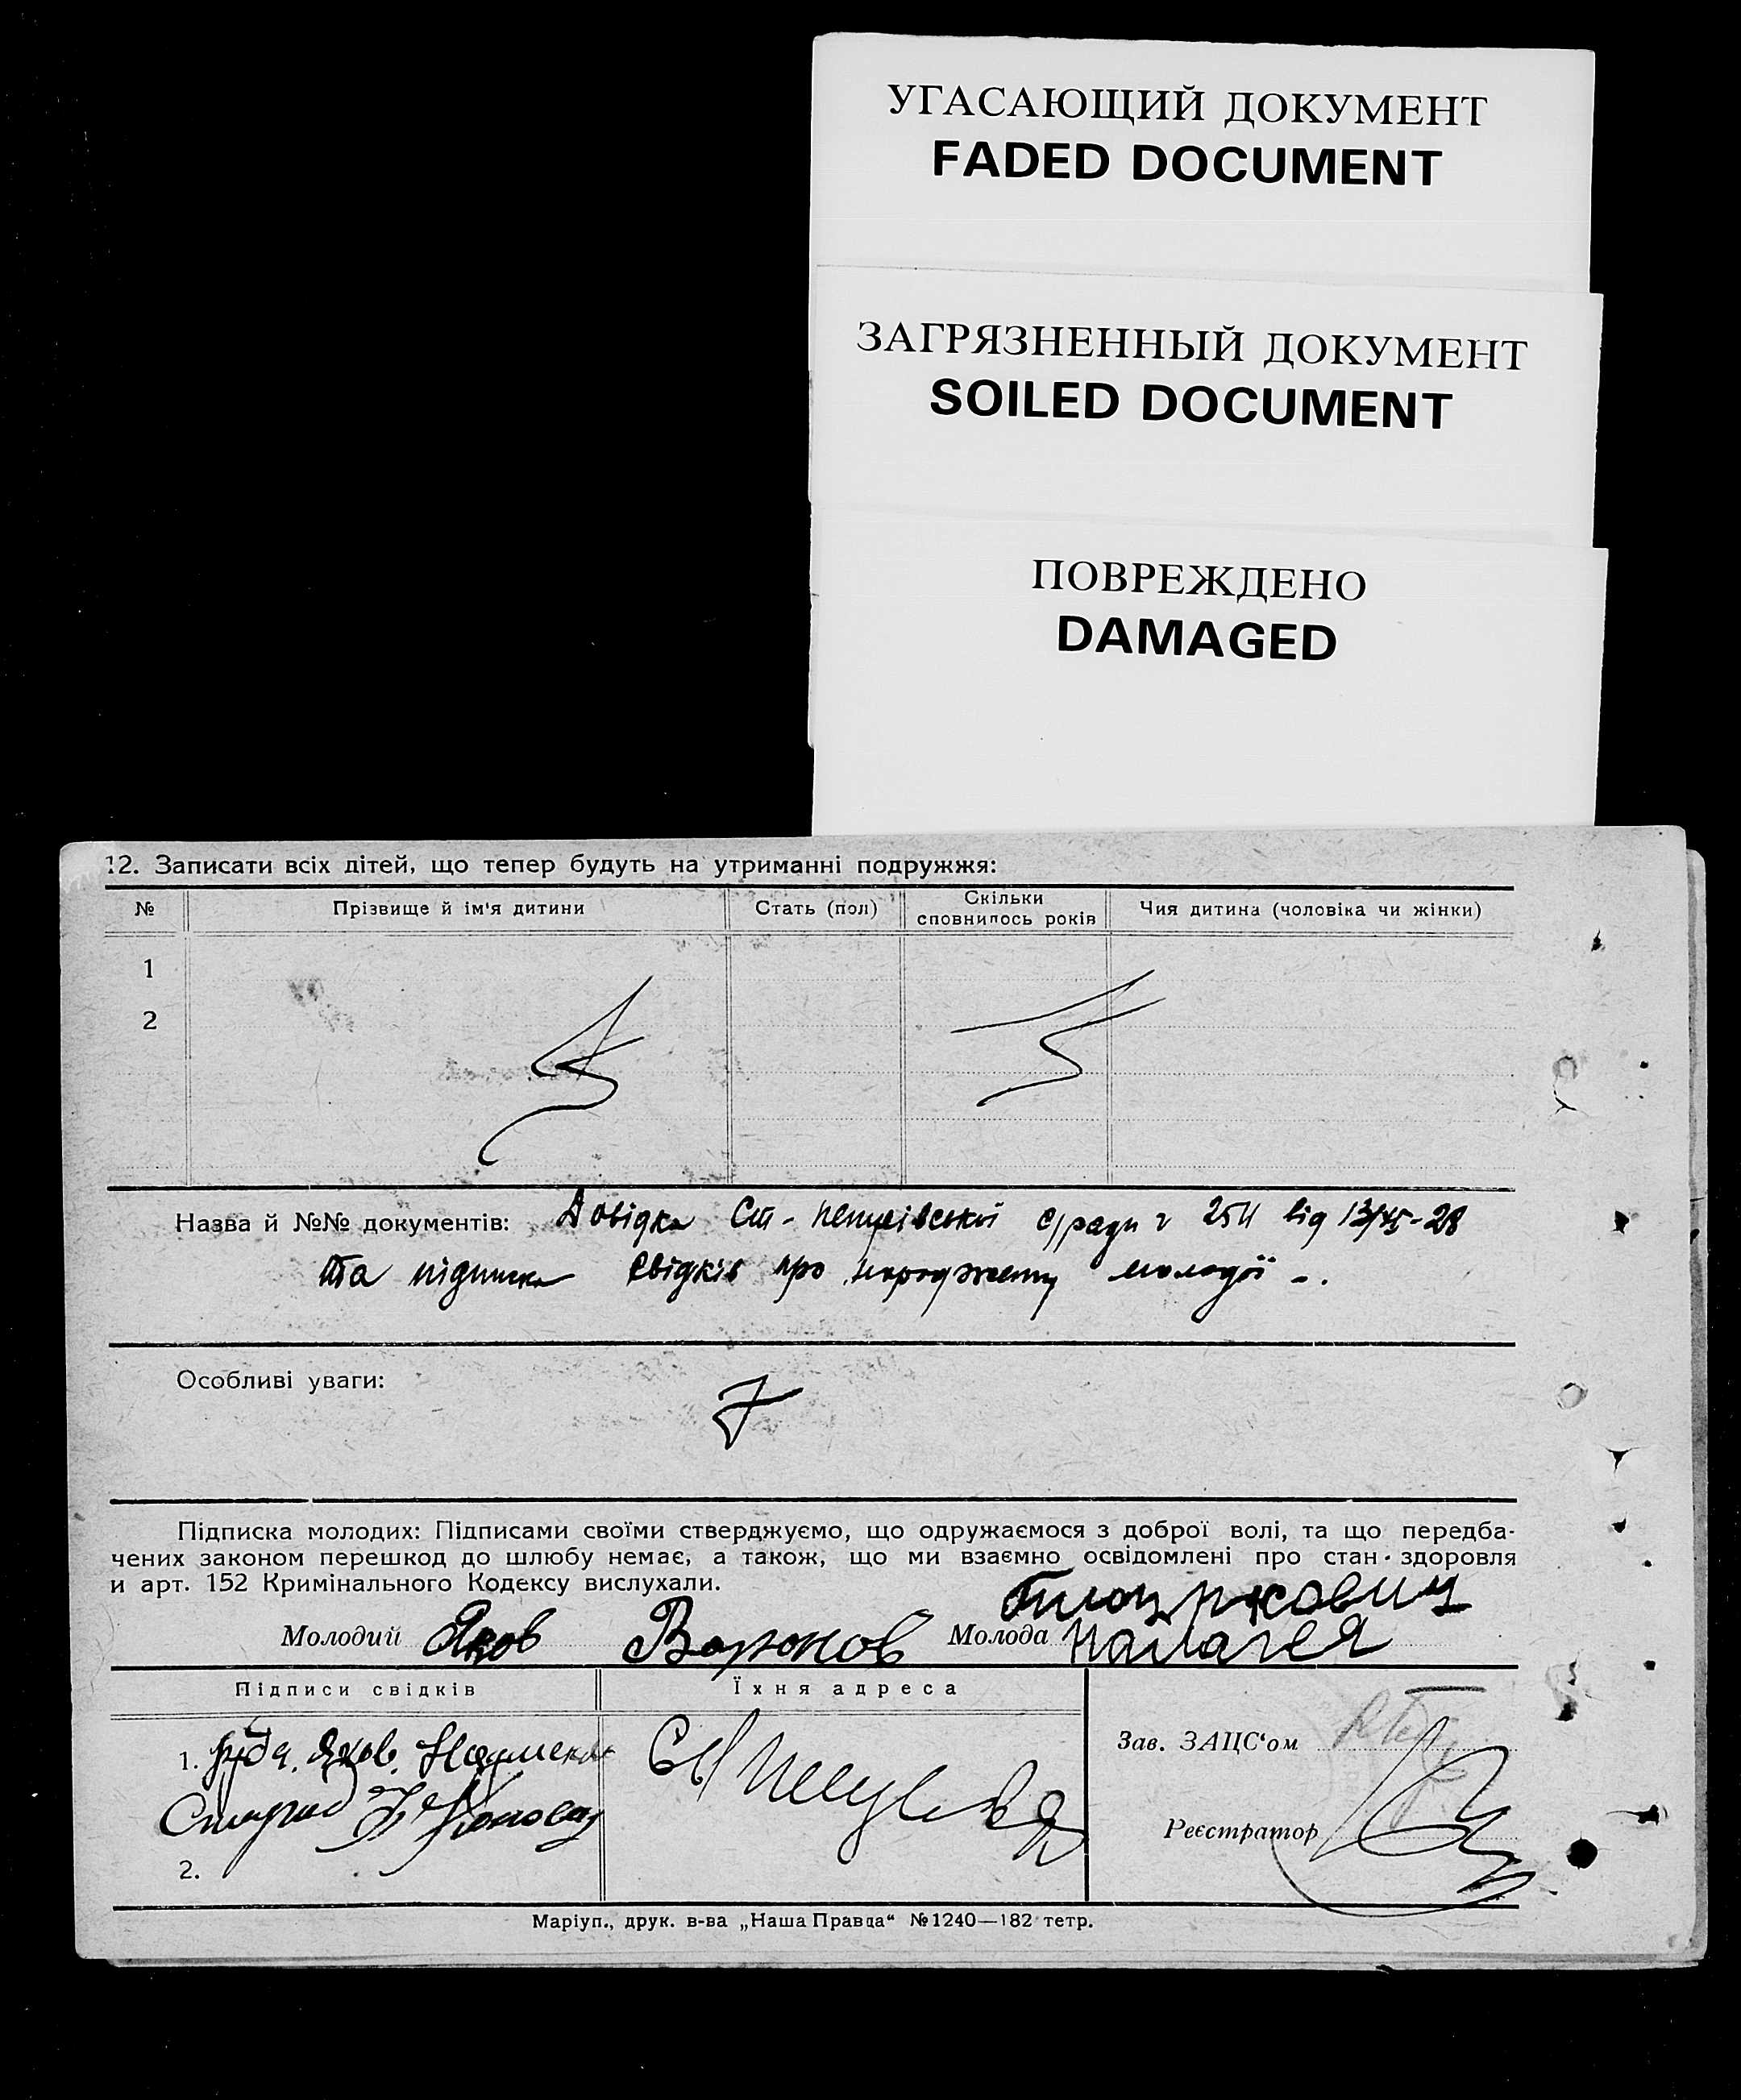 УГАСАЮЩИЙ ДОКУМЕНТ
FADED DOCUMENT
ЗАГРЯЗНЕННЫЙ ДОКУМЕНТ
SOILED DOCUMENT
ПОВРЕЖДЕНО
DAMAGED
12. Записати всіх дітей, що тепер будуть на утриманні подружжя:
№ Прізвище й ім'я дитини Стать (пол) Скільки сповнилось років Чия дитина (чоловіка чи жінки)
1
2
Назва й №№ документів: Довідка Ст- с/ради від
та підписка свідків про молодої -.
Особливі уваги:
Підписка молодих: Підписами своїми стверджуємо, що одружаємося з доброї волі, та що передба-
чених законом перешкод до шлюбу немає, а також, що ми взаємно освідомлені про стан здоровля
и арт. 152 Кримінального Кодексу вислухали.
Молодий Яков Молода
Підписи свідків Їхня адреса
1. Яков
Зав. ЗАЦС'ом
Реєстратор
2.
Маріуп., друк. в-ва „Наша Правда“ №1240—182 тетр.